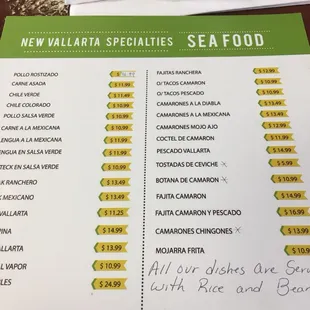 NEW VALLARTA SPECIALTIES SEA FOOD
POLLO ROSTIZADO
CARNE ASADA $11.99
CHILE VERDE $11.49
CHILE COLORADO $10.99
POLLO SALSA VERDE $10.99
CARNE A LA MEXICANA $10.99
LENGUA A LA MEXICANA $11.99
ENGUA EN SALSA VERDE $11.99
TECK EN SALSA VERDE $10.99
K RANCHERO $13.49
K MEXICANO $13.49
VALLARTA $11.25
INA $14.99
ALLARTA $13.99
L VAPOR $10.99
LES $24.99
FAJITAS RANCHERA $12.99
O/ TACOS CAMARON $10.99
O/TACOS PESCADO $10.99
CAMARONES A LA DIABLA $13.49
CAMARONES A LA MEXICANA $13.49
CAMARONES MOJO AJO $12.99
COCTEL DE CAMARON $11.99
PESCADO VALLARTA $14.99
TOSTADAS DE CEVICHE $5.99
BOTANA DE CAMARON $10.99
FAJITA CAMARON $14.99
FAJITA CAMARON Y PESCADO $16.99
CAMARONES CHINGONES $13.99
MOJARRA FRITA $10.9
All our dishes are Serv
with Rice and Bean